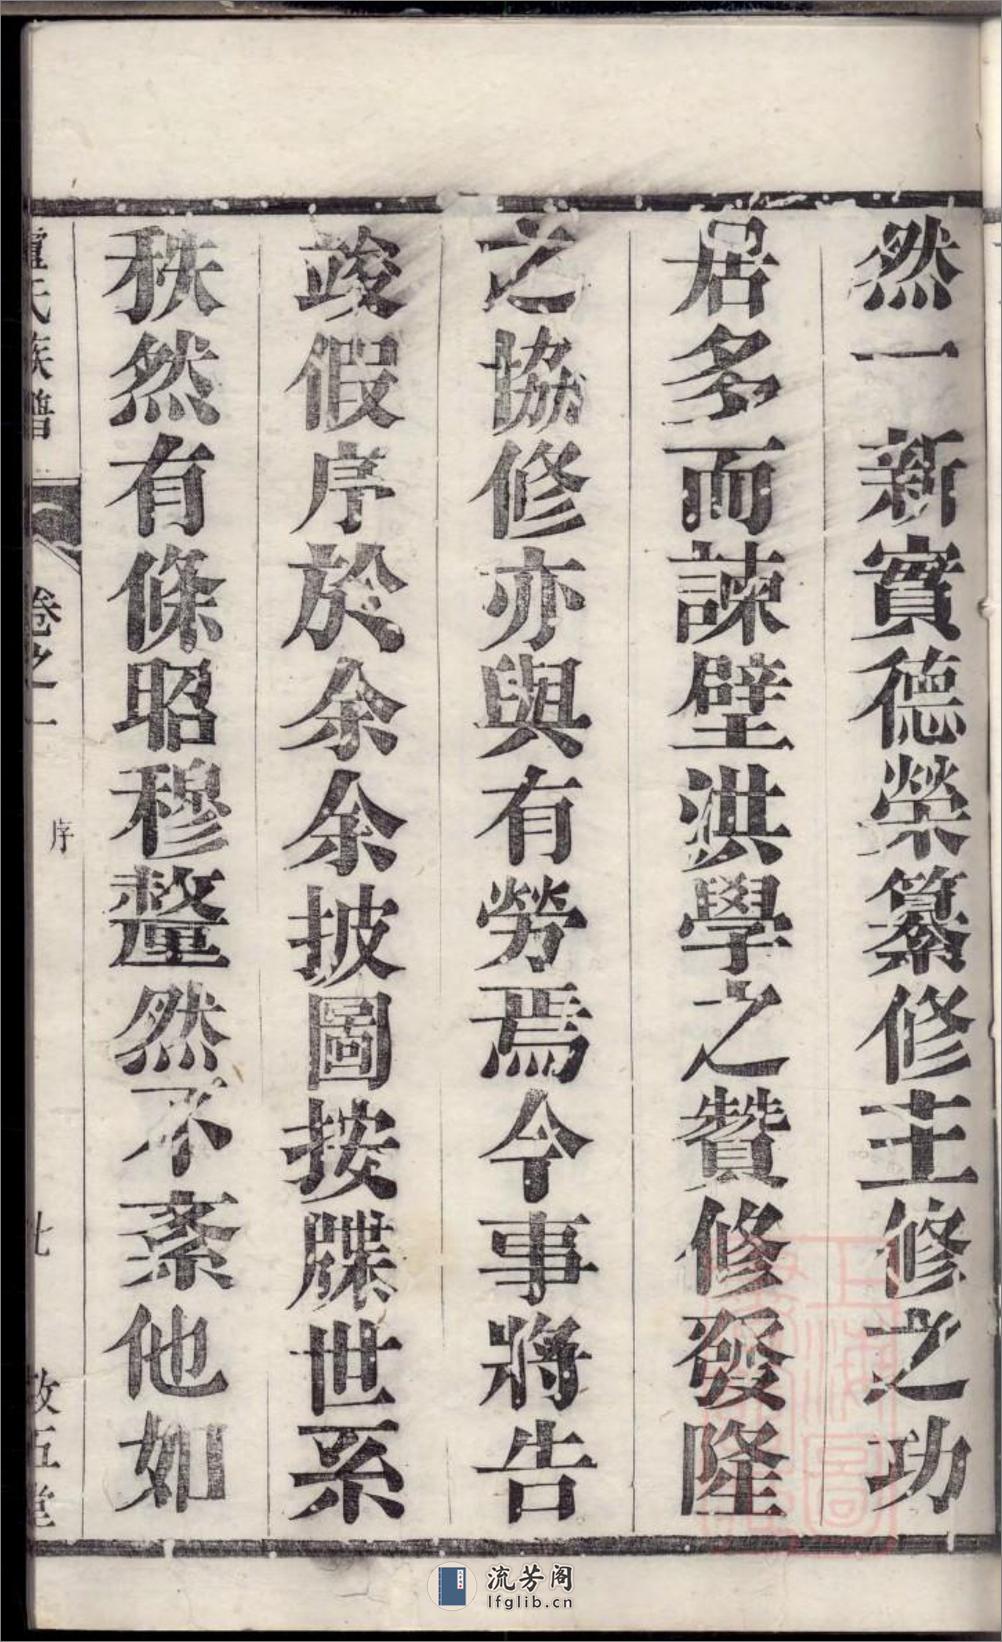 然一新實德榮纂修主修之功
居多而諫壁洪學之贊修發隆
之協修亦與有勞焉今事將告
竣假序於余余披圖按牒世系
秩然有條昭穆釐然不紊他如
盧氏族譜
卷之一
序
七
敦五堂
流芳阁
lfglib.cn